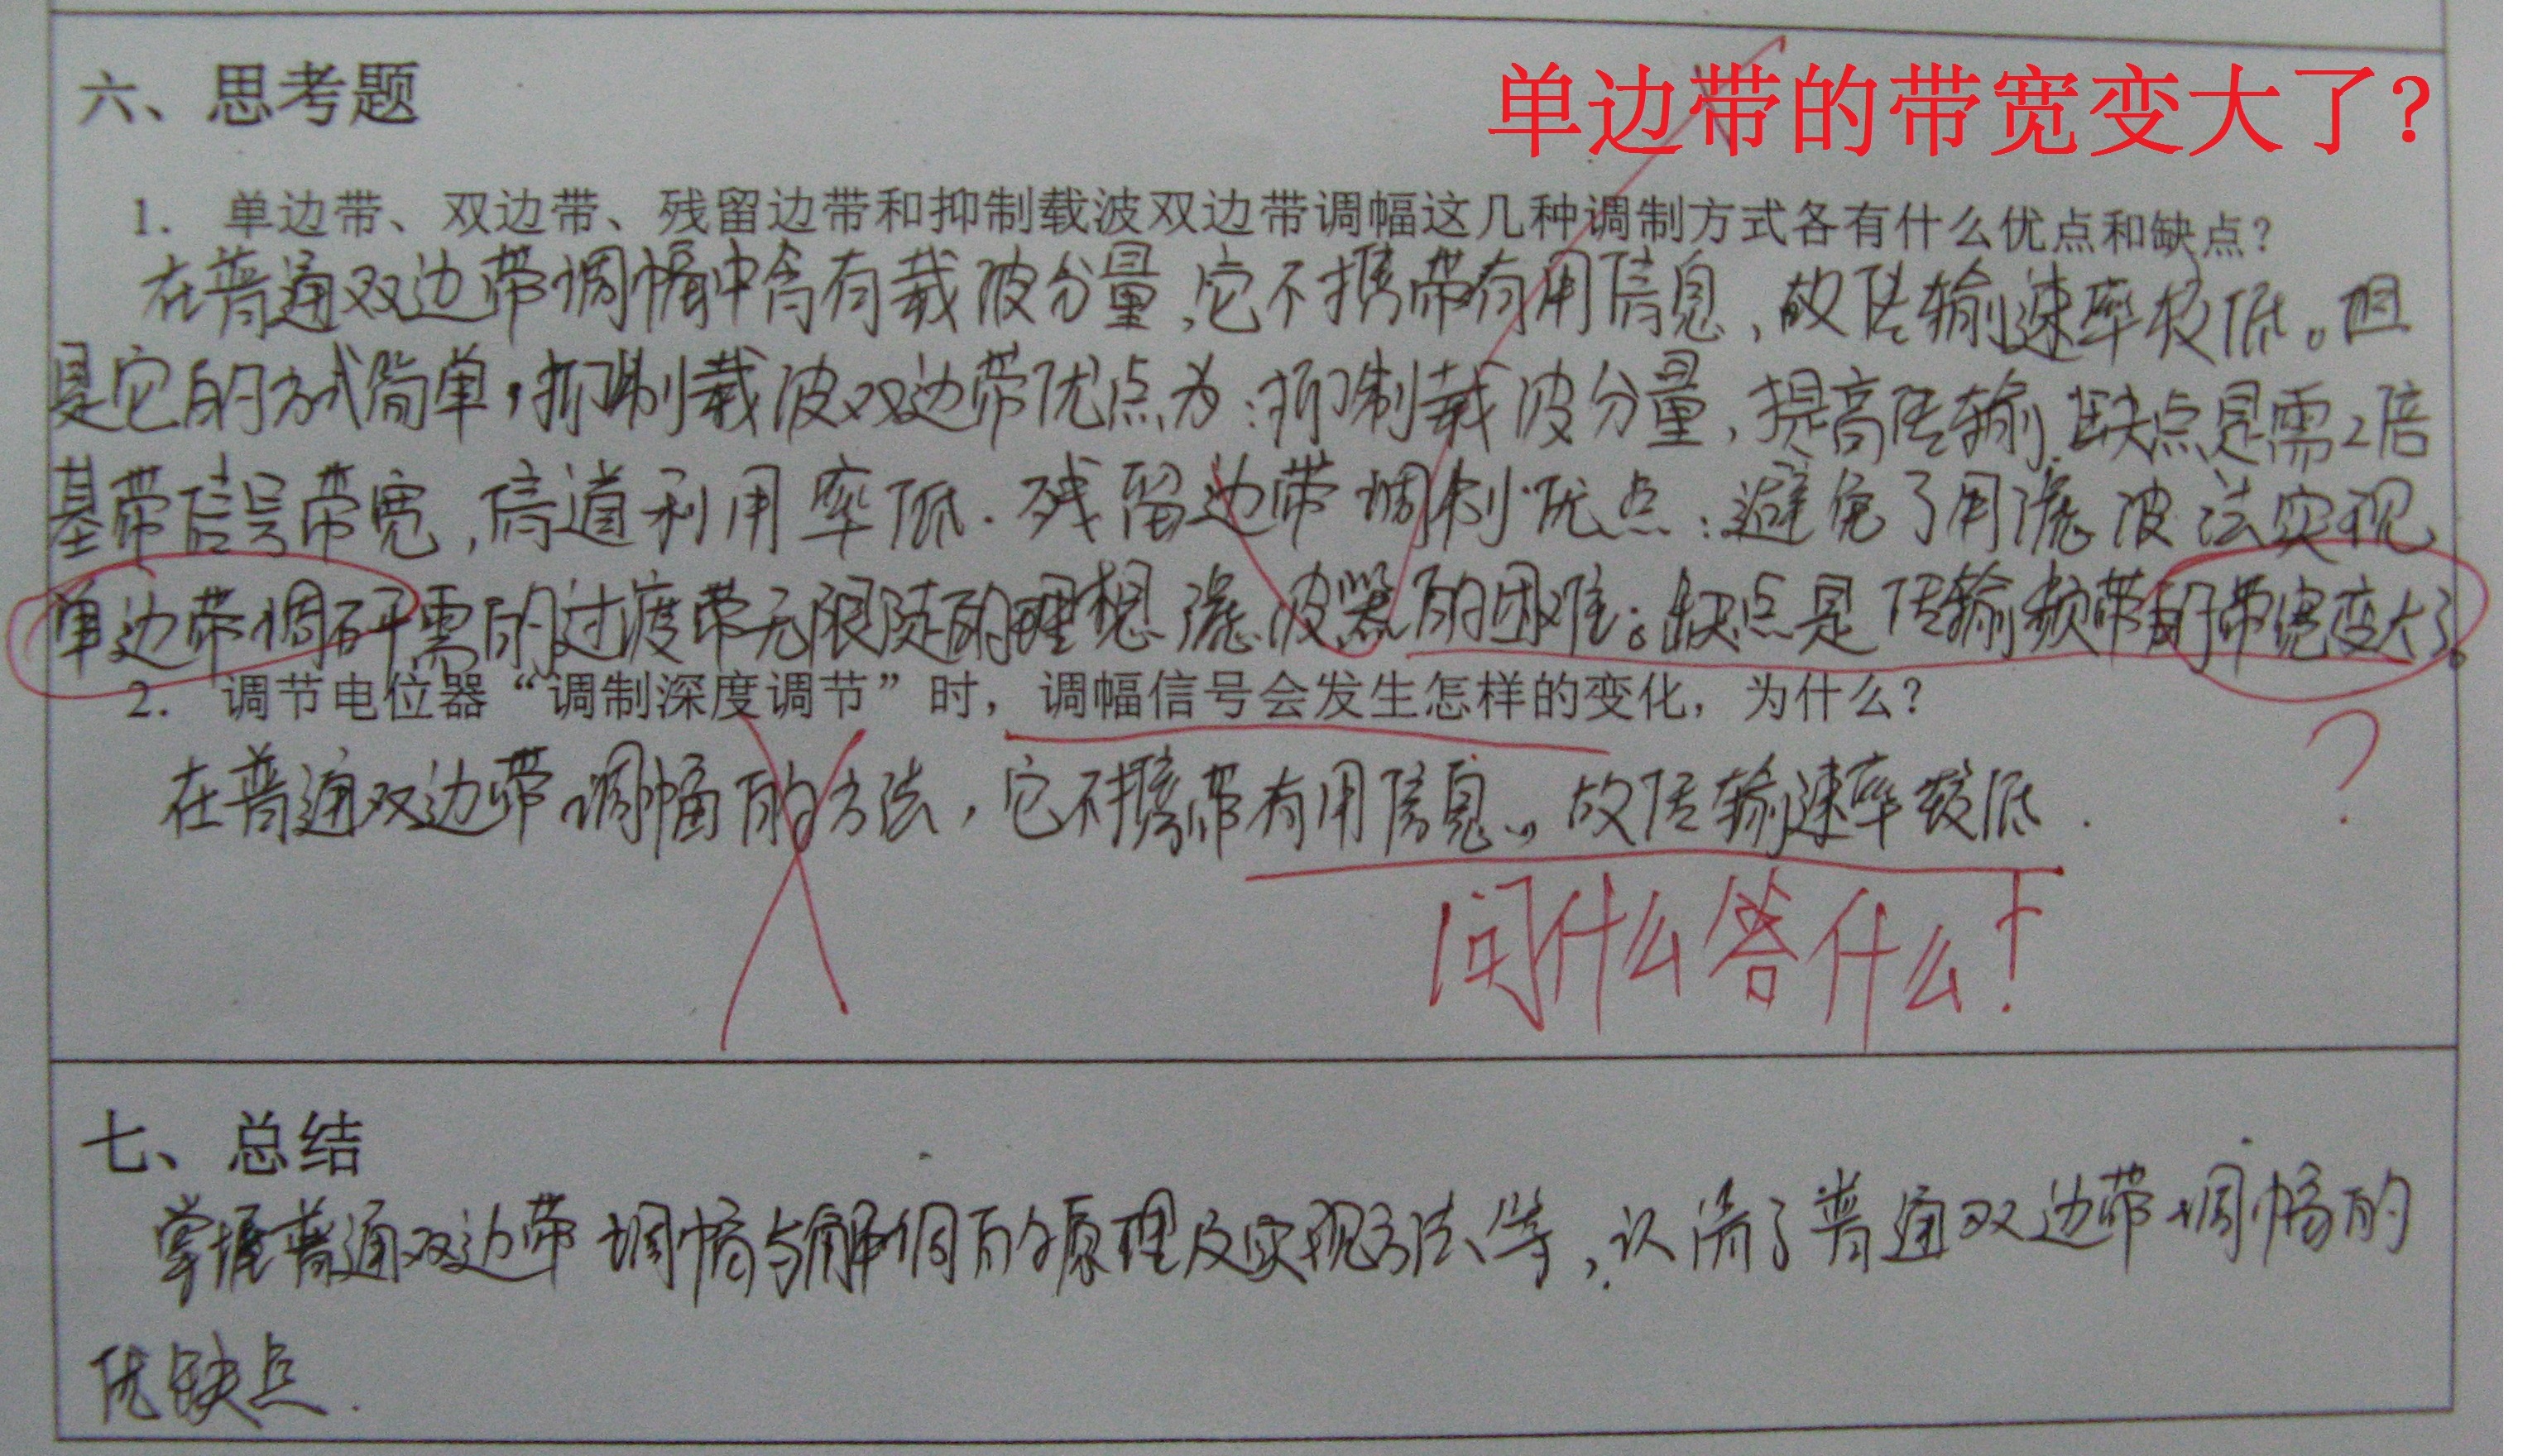 单边带的带宽变大了?
六、思考题
1. 单边带、双边带、残留边带和抑制载波双边带调幅这几种调制方式各有什么优点和缺点?
在普通双边带调幅中含有载波分量,它不携带有用信息,故传输速率较低。但
是它的方式简单,抑制载波双边带优点为:抑制载波分量,提高传输.缺点是需2倍
基带信号带宽,信道利用率低.残留边带调制优点:避免了用滤波法实现
单边带调 需的过渡带无限陡的理想滤波器的困难。缺点是传输频带的带宽变大了。
2. 调节电位器“调制深度调节”时,调幅信号会发生怎样的变化,为什么?
?
在普通双边带调幅的方法,它不携带有用信息,故传输速率较低.
问什么答什么!
七、总结
掌握普通双边带调幅与解调的原理及实现方法等,认清了普通双边带调幅的
优缺点.